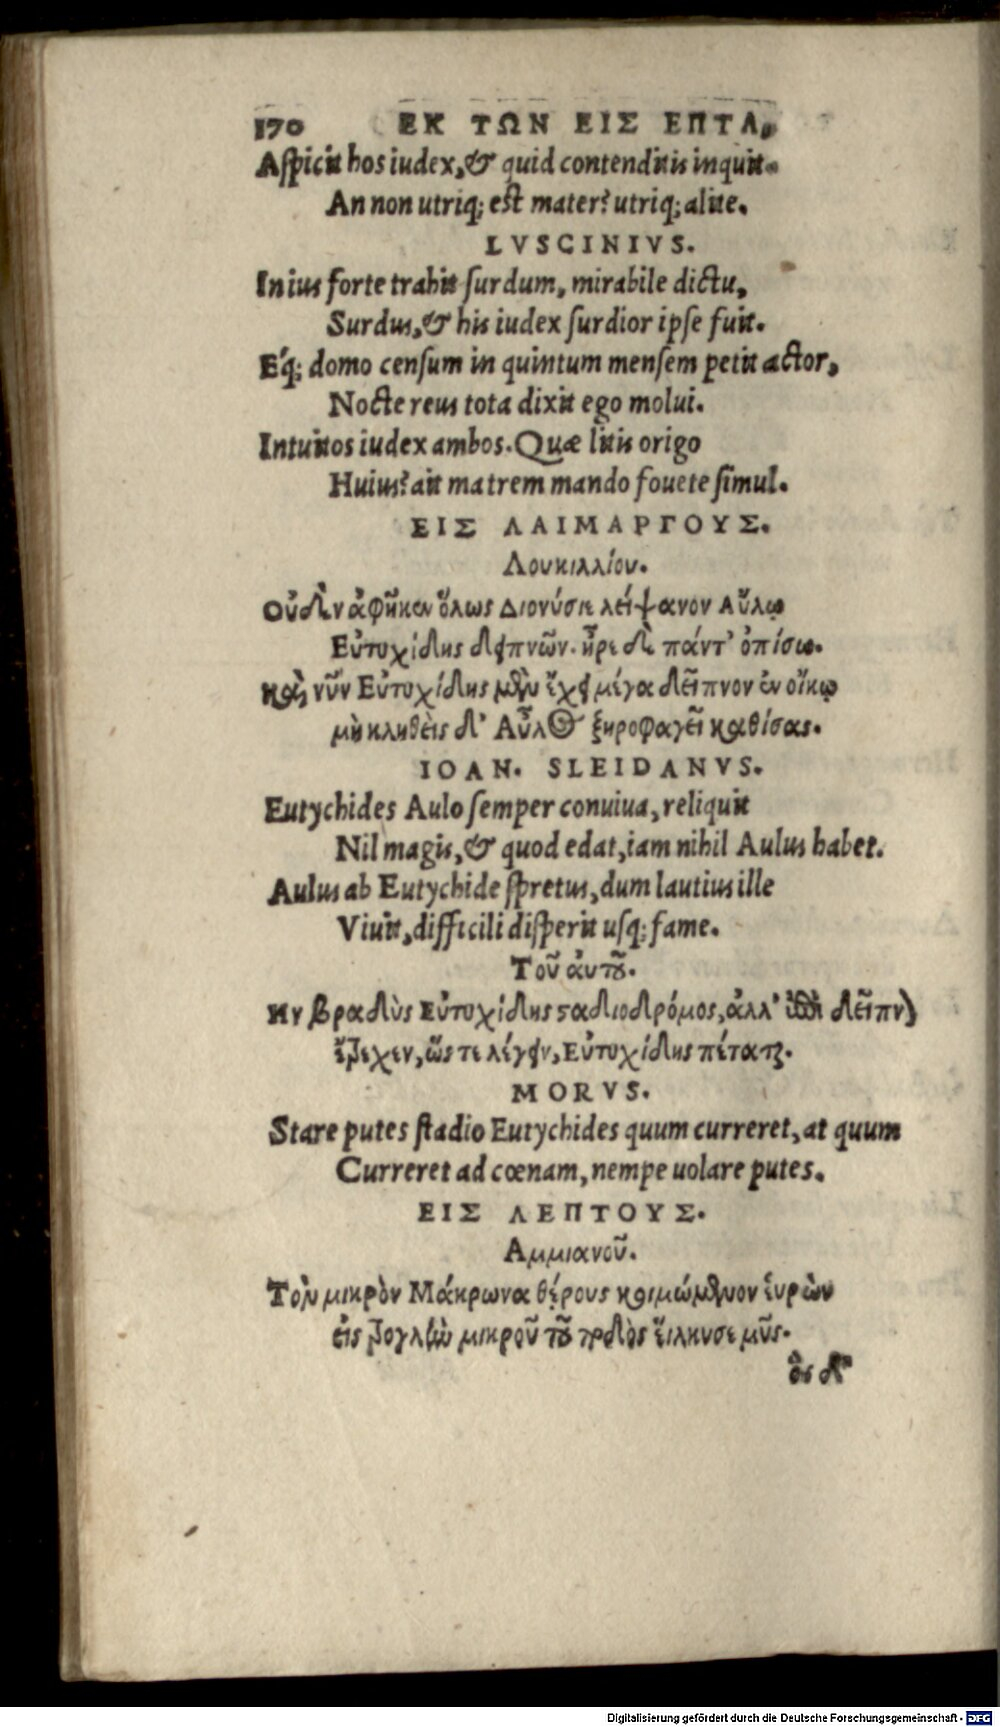 170 ΕΚ ΤΩΝ ΕΙΣ ΕΠΤΑ,
Aspicit hos iudex, & quid contenditis inquit.
An non utriq; est mater? utriq; alite.
LVSCINIVS.
In ius forte trahit surdum, mirabile dictu,
Surdus, & his iudex surdior ipse fuit.
Eq́; domo censum in quintum mensem petit actor,
Nocte reus tota dixit ego molui.
Intuitos iudex ambos. Quæ litis origo
Huius? ait matrem mando fouete simul.
ΕΙΣ ΛΑΙΜΑΡΓΟΥΣ.
Λουκιλλίου.
Οὐδὲν ἀφῆκεν ὅλως Διονύσιε λείψανον Αὔλῳ
Εὐτυχίδης δειπνῶν. ἦρε δὲ πάντ' ὀπίσω.
καὶ νῦν Εὐτυχίδης μὲν ἔχει μέγα δεῖπνον ἐν οἴκῳ
μὴ κληθεὶς δ' Αὖλος ξηροφαγεῖ καθίσας.
IOAN. SLEIDANVS.
Eutychides Aulo semper conuiua, reliquit
Nil magis, & quod edat, iam nihil Aulus habet.
Aulus ab Eutychide spretus, dum lautius ille
Viuit, difficili disperit usq; fame.
Τοῦ ἀυτοῦ.
Ην βραδὺς Εὐτυχίδης σταδιοδρόμος, ἀλλ' ἐπὶ δεῖπνον
ἔτρεχεν, ὥς τε λέγειν, Εὐτυχίδης πέταται.
MORVS.
Stare putes stadio Eutychides quum curreret, at quum
Curreret ad cœnam, nempe uolare putes.
ΕΙΣ ΛΕΠΤΟΥΣ.
Αμμιανοῦ.
Τὸν μικρὸν Μάκρωνα θέρους κοιμώμενον ἑυρὼν
εἰς τρογλὴν μικροῦ τοῦ ποδὸς εἵλκυσε μῦς.
ὃς δ'
Digitalisierung gefördert durch die Deutsche Forschungsgemeinschaft - DFG